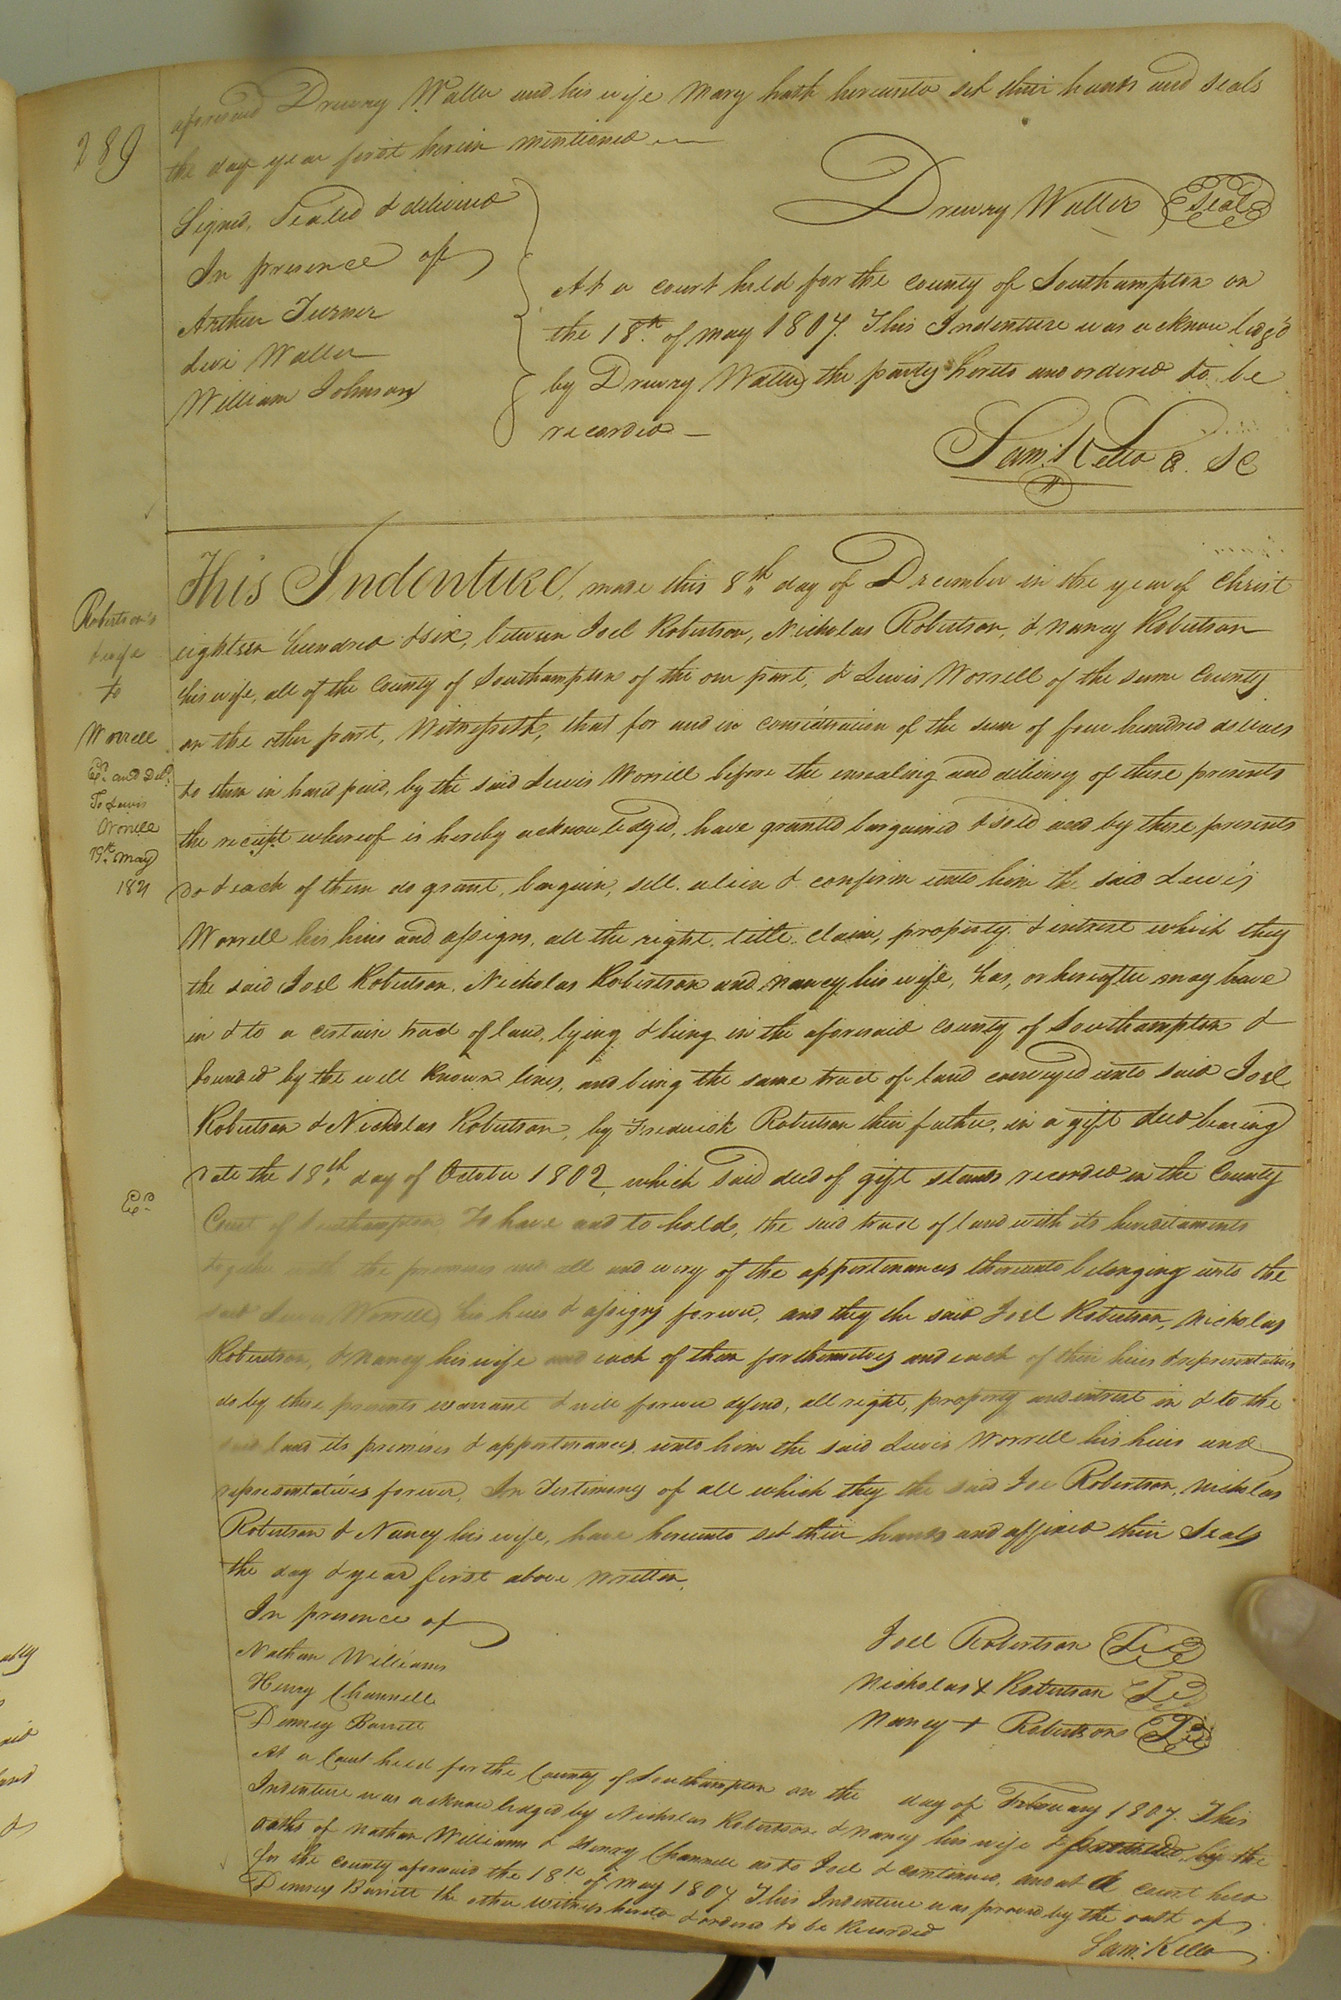 289
aforesaid Drewry Waller and his wife Mary hath hereunto set their hands and seals
the day year first herein mentioned
Signed, Sealed & delivered
In presence of
Arthur Turner
Levi Waller
William Johnson
Drewry Waller Seal
At a court held for the county of Southampton on
the 18th. of may 1807. This Indenture was acknowledg'd
by Drewry Waller the party hereto and ordered to be
recorded
Sam: Kello C. SC
Robertson's
& wife
to
Worrell
Ex.d and Del.d
To Lewis
Worrell
19th. May
1821
This Indenture, made this 8th day of December in the year of Christ
eighteen hundred & six, between Joel Robertson, Nicholas Robertson, & Nancy Robertson
his wife, all of the County of Southampton of the one part, & Lewis Worrell of the same County
on the other part, Witnesseth, that for and in consideration of the sum of four hundred dollars
to them in hand paid, by the said Lewis Worrell before the ensealing and delivery of these presents
the receipt whereof is hereby acknowledged, have granted bargained & sold and by these presents
do & each of them do grant, bargain, sell, alien & confirm unto him the said Lewis
Worrell his heirs and assigns, all the right, title, claim, property, & interest which they
the said Joel Robertson, Nicholas Robertson and Nancy his wife, has, or hereafter may have
in & to a certain tract of land, lying & being in the aforesaid county of Southampton &
bounded by the well known lines, and being the same tract of land conveyed unto said Joel
Robertson & Nicholas Robertson, by Frederick Robertson their father, in a gift deed bearing
date the 18th. day of October 1802, which said deed of gift stands recorded in the County
Ex.d
Court of Southampton To have and to hold, the said tract of land with its hereditaments
together with the premises and all and every of the appertenances thereunto belonging unto the
said Lewis Worrell, his heirs & assigns forever, and they the said Joel Robertson, Nicholas
Robertson, & Nancy his wife and each of them for themselves and each of their heirs & representatives
do by these presents warrant & will forever defend, all right, property and interest in & to the
said land its premises & appertenances, unto him the said Lewis Worrell his heirs and
representatives forever. In Testimony of all which they the said Joel Robertson, Nicholas
Robertson & Nancy his wife, have hereunto set their hands and affixed their Seals
the day & year first above written.
In presence of
Nathan Williams
Henry Channell
Denney Barrett
Joel Robertson
Nicholas + Robertson
Nancy + Robertson
At a Court held for the County of Southampton on the day of February 1807. This
Indenture was acknowledged by Nicholas Robertson & Nancy his wife & by the
oaths of Nathan Williams & Henry Channell as to Joel & continued, and at a court held
for the county aforesaid the 18th. of may 1807 This Indenture was proved by the oath of
Denney Barrett the other witness hereto & ordered to be Recorded
Sam: Kello